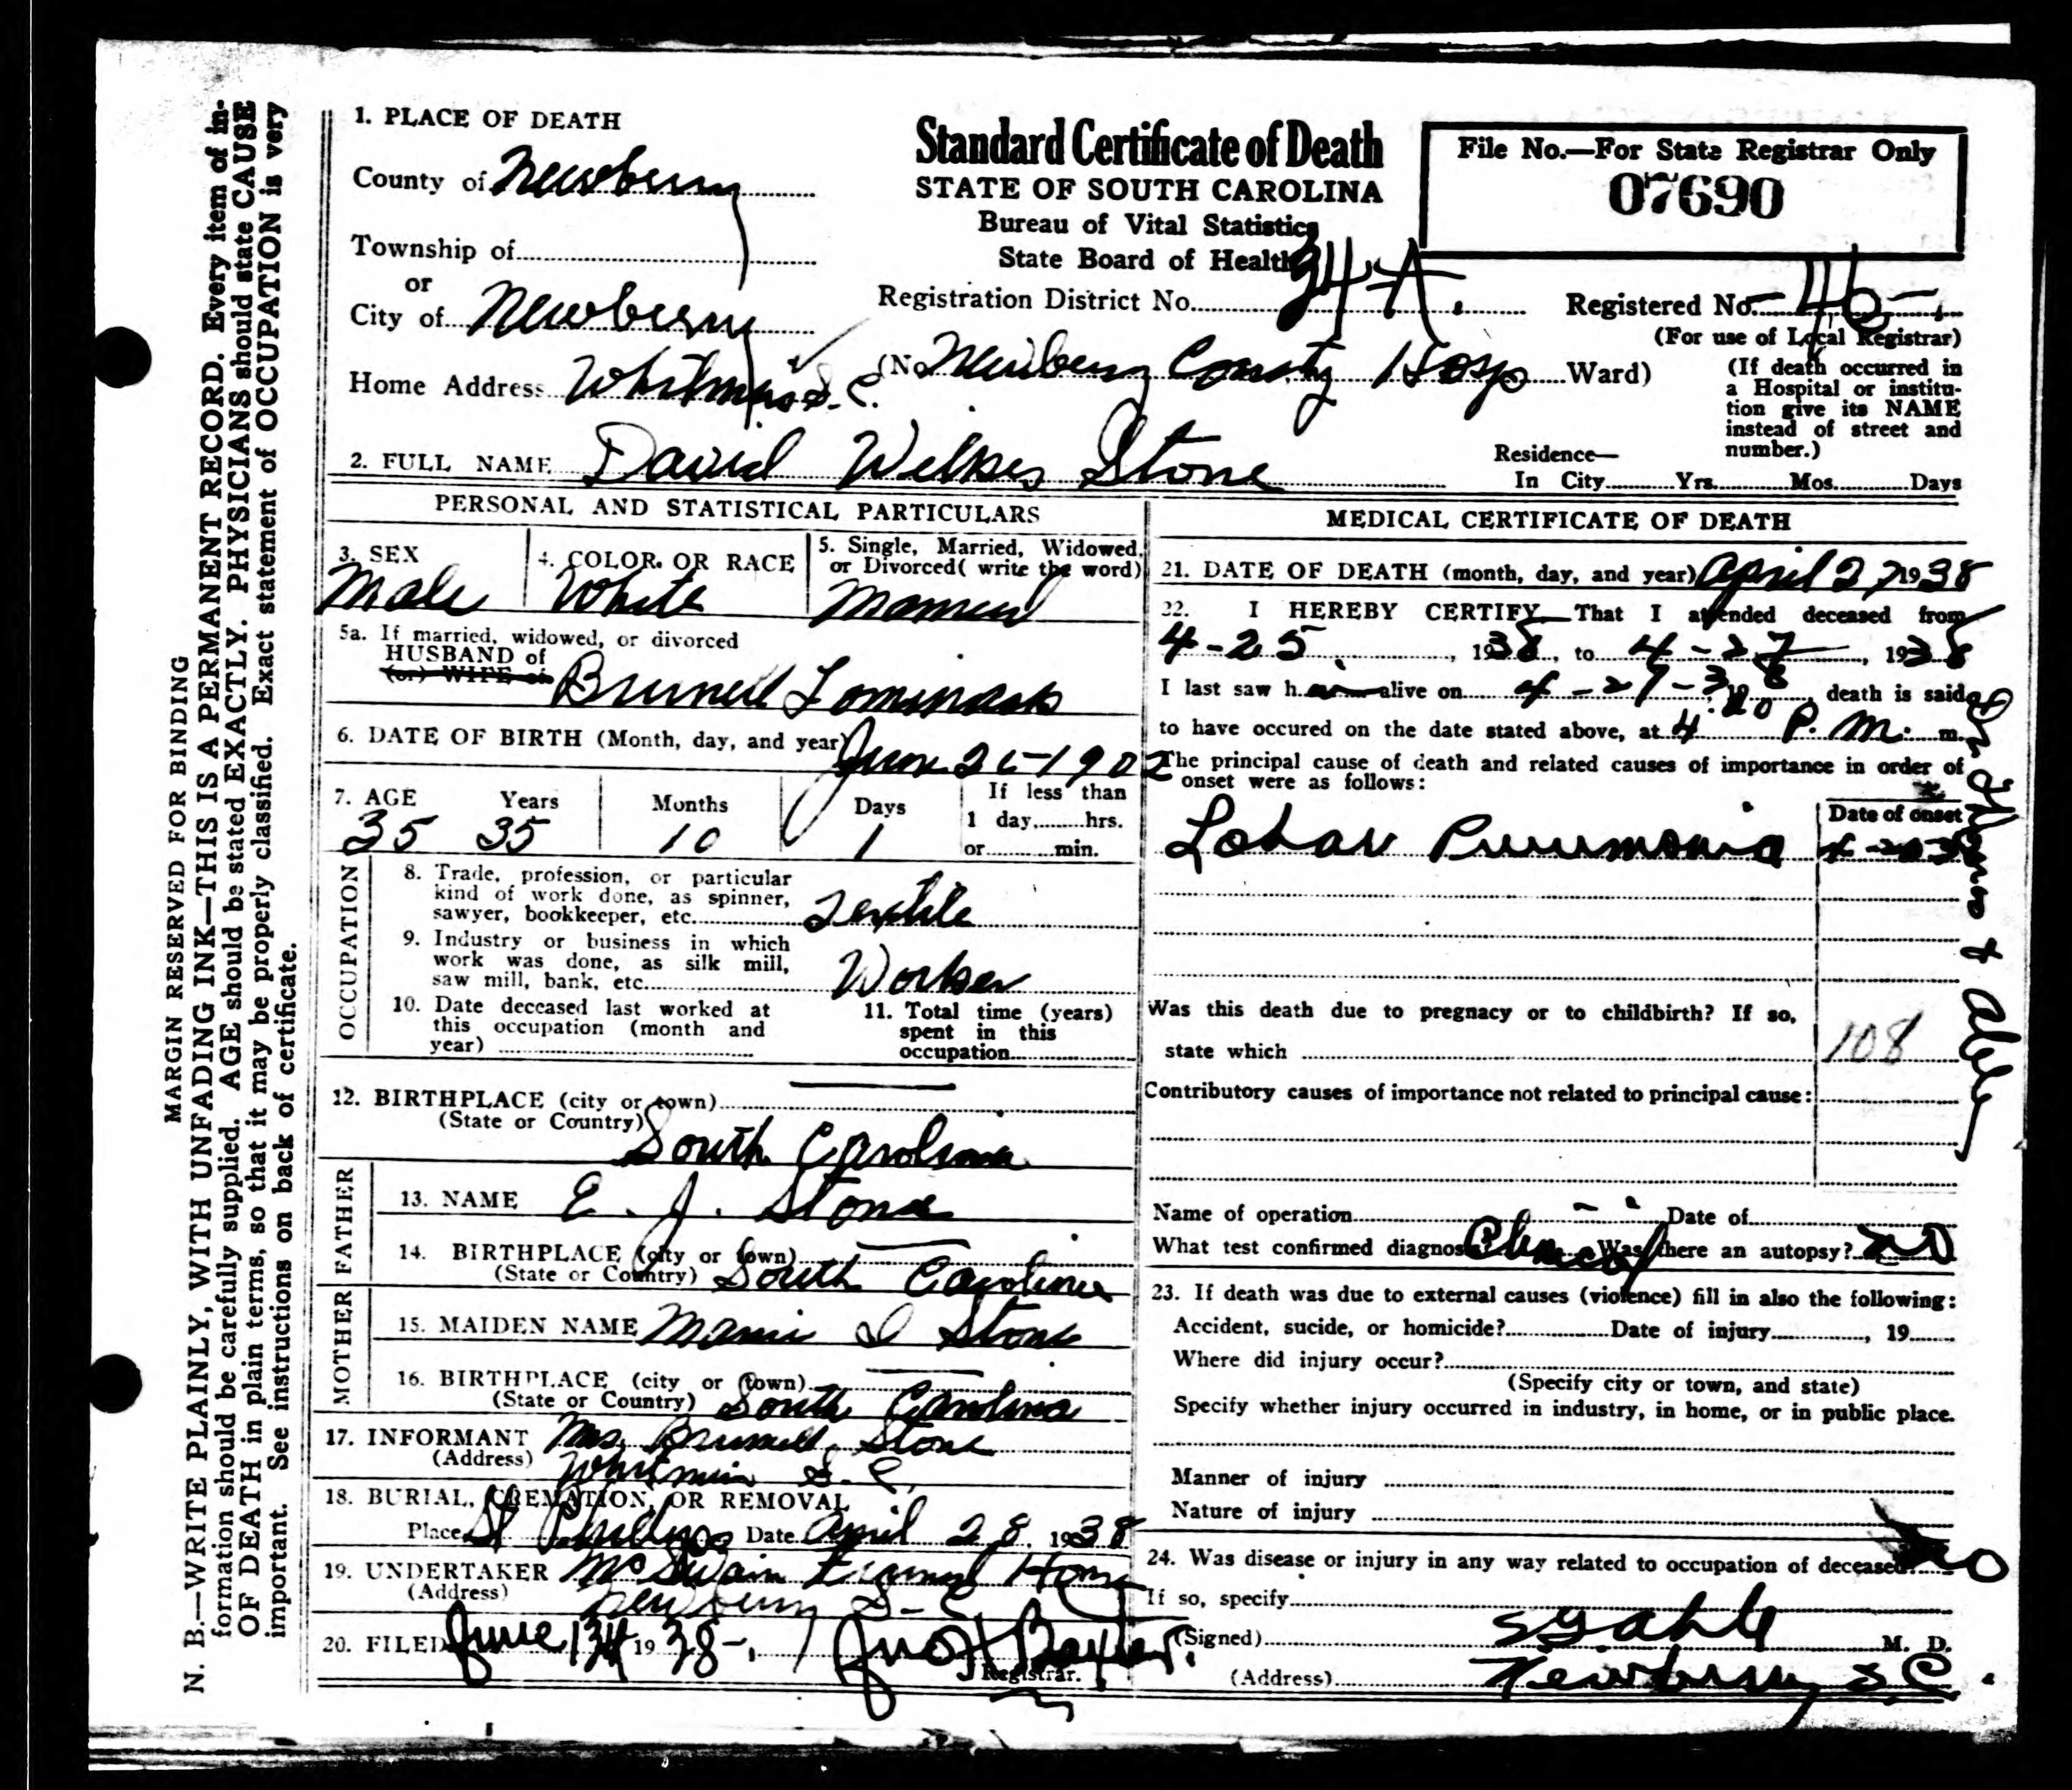 MARGIN RESERVED FOR BINDING
N. B.—WRITE PLAINLY, WITH UNFADING INK—THIS IS A PERMANENT RECORD. Every item of in-
formation should be carefully supplied. AGE should be stated EXACTLY. PHYSICIANS should state CAUSE
OF DEATH in plain terms, so that it may be properly classified. Exact statement of OCCUPATION is very
important. See instructions on back of certificate.
1. PLACE OF DEATH
County of Newberry
Township of
or
City of Newberry
Home Address Whitmire S. C.
Standard Certificate of Death
STATE OF SOUTH CAROLINA
Bureau of Vital Statistics
State Board of Health
Registration District No. 34-A.
(No Newberry County Hosp Ward)
File No.—For State Registrar Only
07690
Registered No. 46
(For use of Local Registrar)
(If death occurred in
a Hospital or institu-
tion give its NAME
instead of street and
number.)
2. FULL NAME David Wilkes Stone
Residence—
In City Yrs. Mos. Days
PERSONAL AND STATISTICAL PARTICULARS
3. SEX
Male
4. COLOR OR RACE
White
5. Single, Married, Widowed,
or Divorced( write the word)
Married
5a. If married, widowed, or divorced
HUSBAND of
(or) WIFE of
Brunell Lominack
6. DATE OF BIRTH (Month, day, and year) June 26-1902
7. AGE Years Months Days If less than
35 35 10 1 1 day, hrs.
or min.
OCCUPATION
8. Trade, profession, or particular
kind of work done, as spinner,
sawyer, bookkeeper, etc. Textile
9. Industry or business in which
work was done, as silk mill,
saw mill, bank, etc. Worker
10. Date deceased last worked at
this occupation (month and
year)
11. Total time (years)
spent in this
occupation
12. BIRTHPLACE (city or town)
(State or Country) South Carolina
FATHER
13. NAME E. J. Stone
14. BIRTHPLACE (city or town)
(State or Country) South Carolina
MOTHER
15. MAIDEN NAME Mamie Stone
16. BIRTHPLACE (city or town)
(State or Country) South Carolina
17. INFORMANT Mrs. Brunell Stone
(Address) Whitmire S. C.
18. BURIAL, CREMATION, OR REMOVAL
Place St Phillips Date April 28, 1938
19. UNDERTAKER McSwain Funeral Home
(Address) Newberry S-C
20. FILED June 13 1938-, Jno H Baxter.
Registrar.
MEDICAL CERTIFICATE OF DEATH
21. DATE OF DEATH (month, day, and year) April 27 1938
22. I HEREBY CERTIFY—That I attended deceased from
4-25, 1938, to 4-27, 1938
I last saw h alive on 4-27-38, death is said
to have occured on the date stated above, at 4:20 P.M. m.
The principal cause of death and related causes of importance in order of
onset were as follows:
Date of onset
Lobar Pneumonia
Was this death due to pregnacy or to childbirth? If so,
state which
108
Contributory causes of importance not related to principal cause:
Name of operation Date of
What test confirmed diagnosis? Clinical Was there an autopsy? no
23. If death was due to external causes (violence) fill in also the following:
Accident, sucide, or homicide? Date of injury , 19
Where did injury occur?
(Specify city or town, and state)
Specify whether injury occurred in industry, in home, or in public place.
Manner of injury
Nature of injury
24. Was disease or injury in any way related to occupation of deceased? no
If so, specify
(Signed) M. D.
(Address) Newberry S.C.